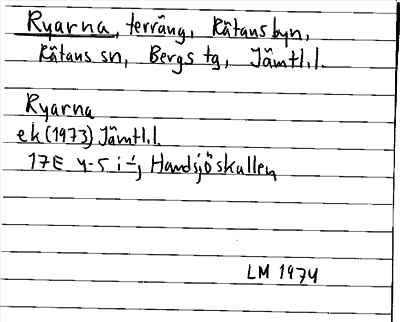 Ryarna, terräng, Rätansbyn,
Rätans sn, Bergs tg, Jämtl.l.
Ryarna
ek (1973) Jämtl.l.
17E 4-5 i-j Handsjöskallen
LM 1974